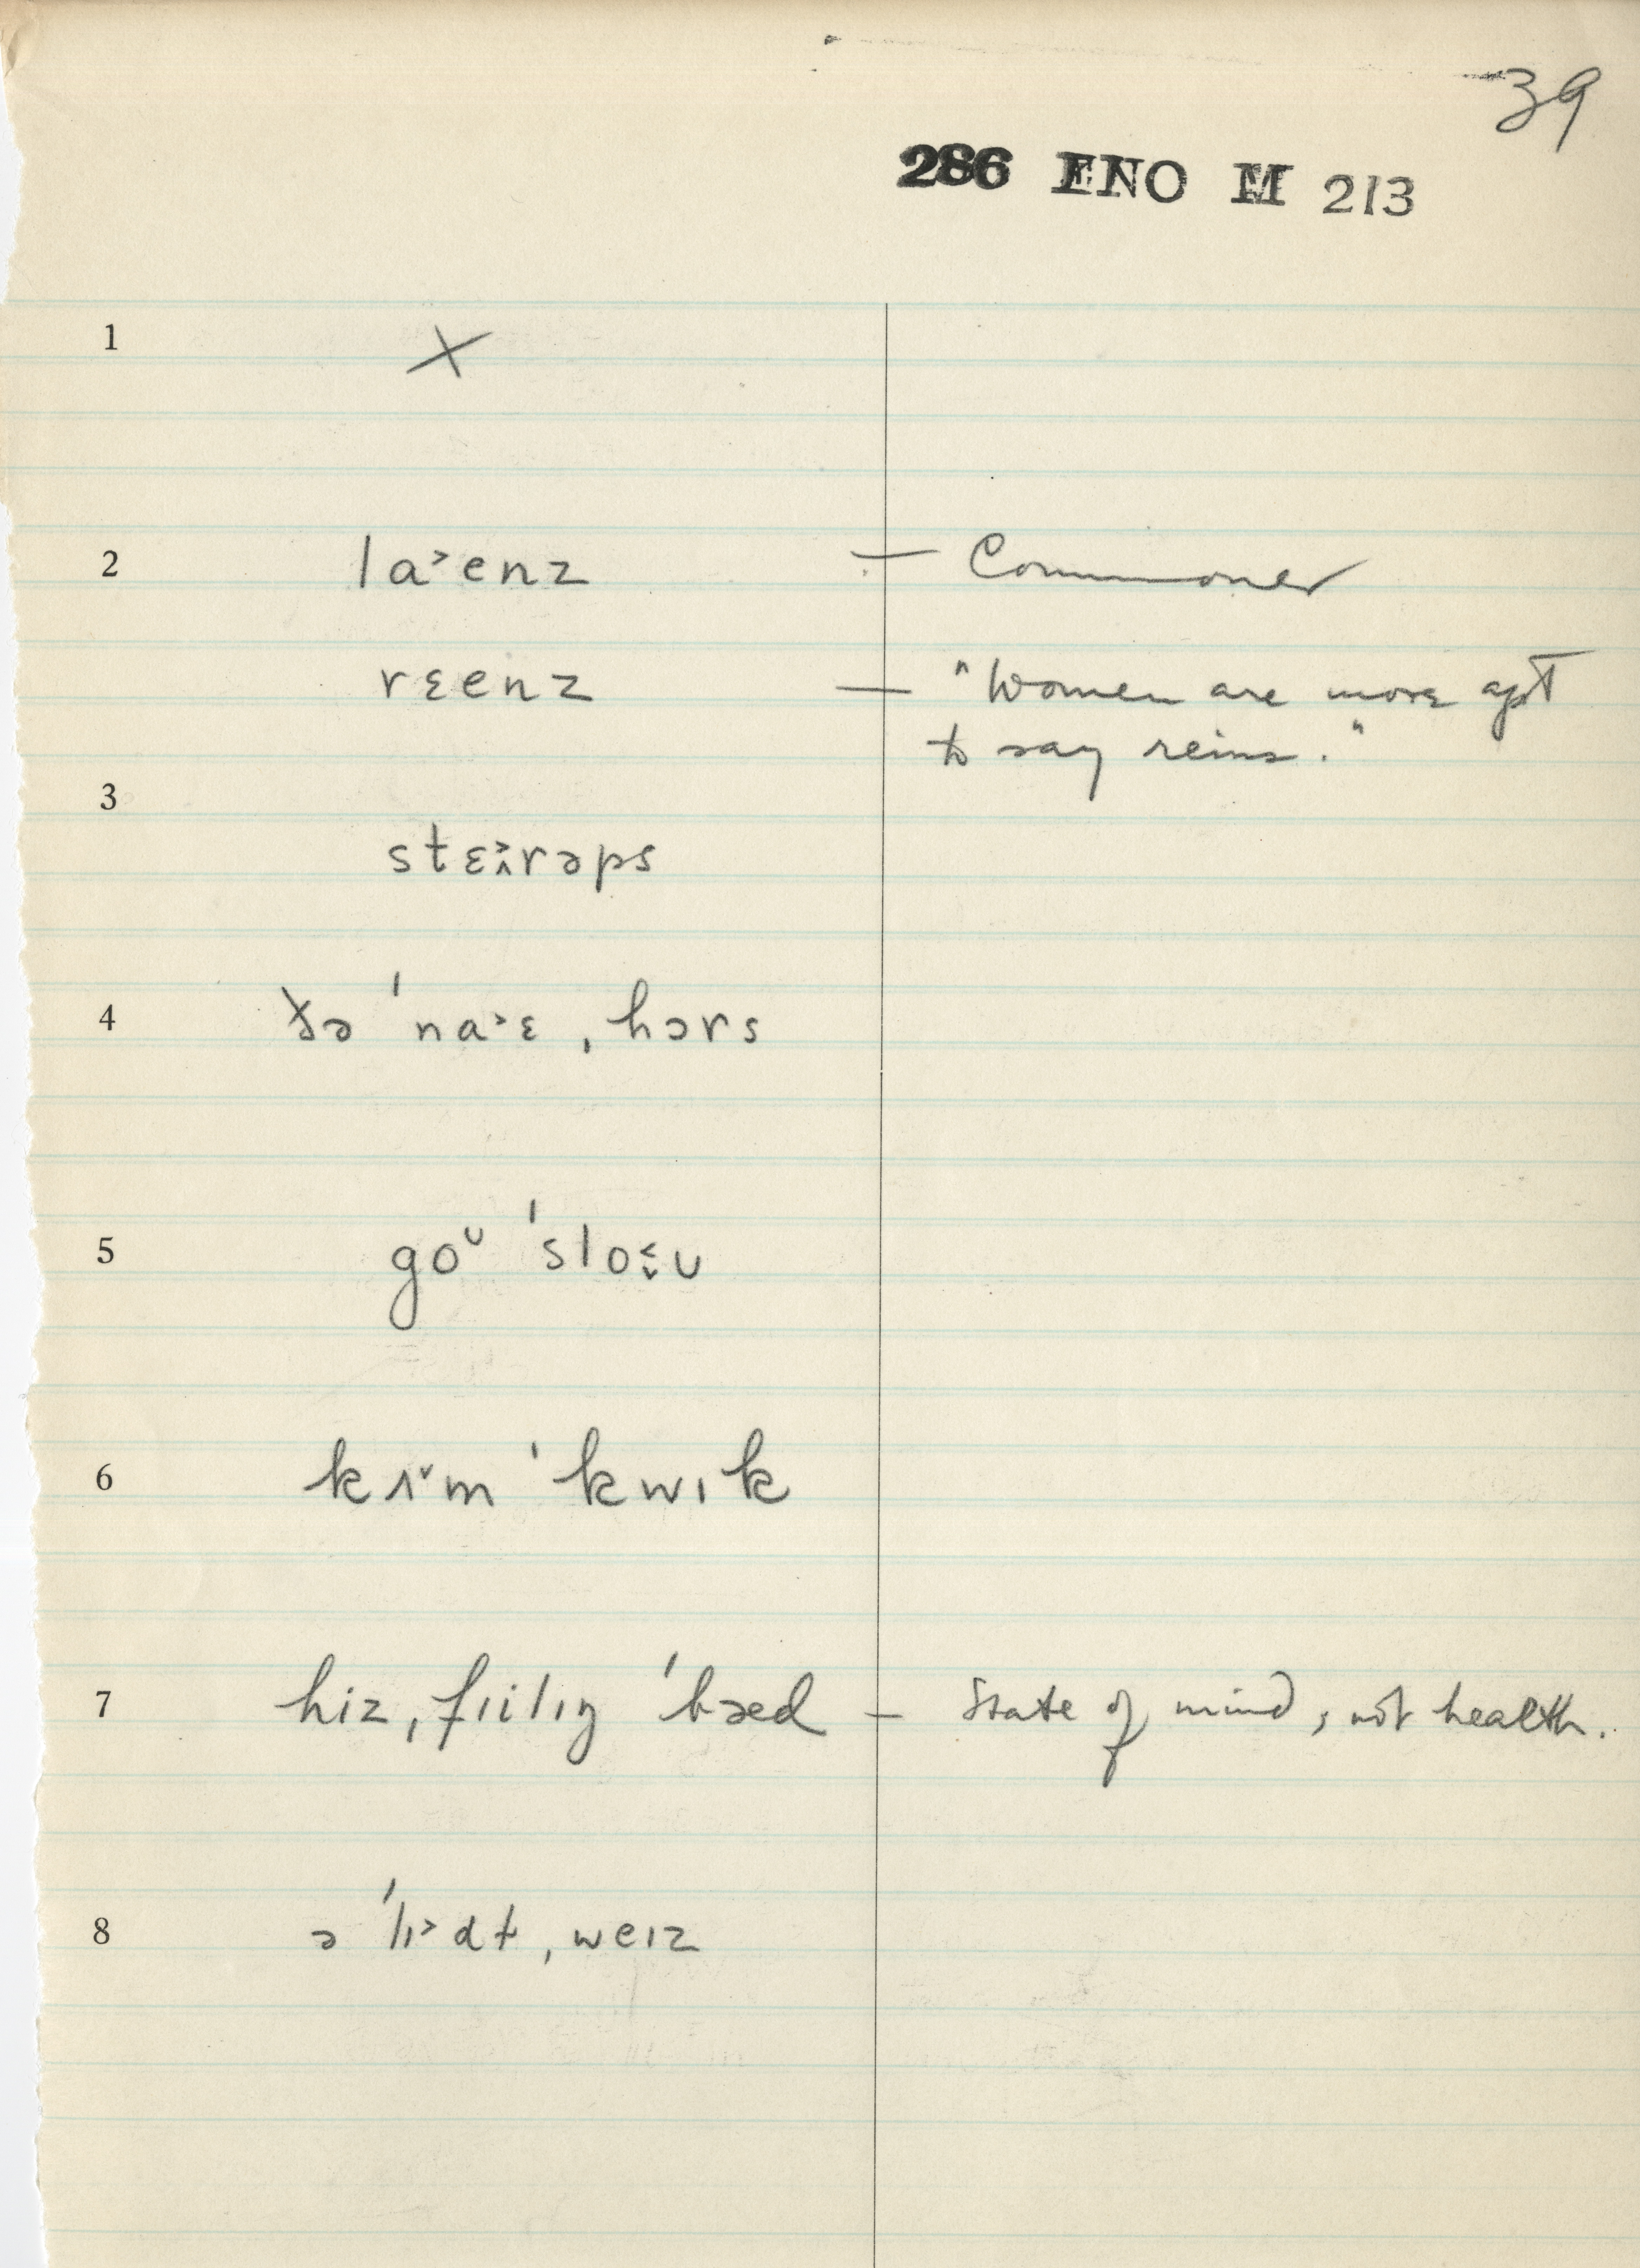 39
286 ENO M 213
1 ×
2 la˃enz — Commoner
rɛenz — "Women are more apt
to say reins."
3
stɛɜ˄˃rəps
4 ðə ˈna˃ɛ ˌhɔrs
5 goᴜ ˈslo˂˅ᴜ
6 kʌ˅m ˈkwɪk
7 hiz ˌfɪilɪŋ ˈbæɛd — State of mind, not health.
8 ə ˈlɪ˃dt ˌweɪz